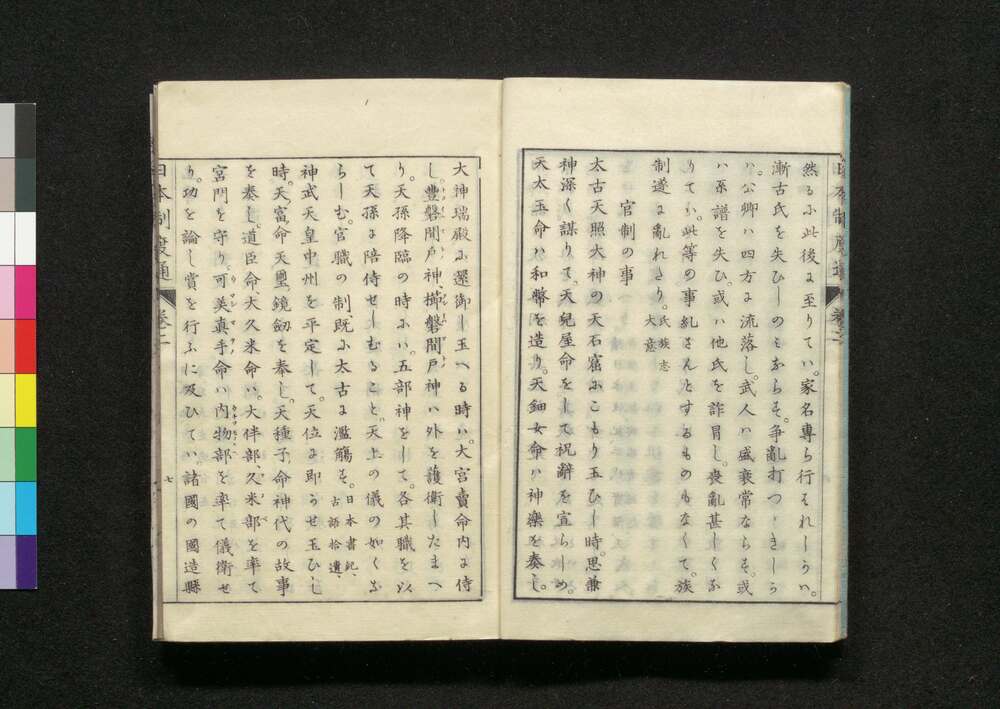 日本制度通
然るに此後に至りてハ。家名専ら行はれしかハ。
漸古氏を失ひしのミならす。争亂打つゝきしか
ハ。公卿ハ四方に流落し。武人ハ盛衰常ならす。或
ハ系譜を失ひ。或ハ他氏を詐冒し。喪亂甚しくな
りてハ。此等の事糺さんとするものもなくて。族
制遂に亂れたり。氏族志
大意
官制の事
太古天照大神の天石窟にこもり玉ひし時。思兼
神深く謀りて。天兒屋命をして祝辭を宣らしめ。
天太玉命ハ和幣を造り。天鈿女命ハ神樂を奏し。
大神瑞殿に還御し玉へる時ハ。大宮賣命内に侍
し。豊磐間戸神、櫛磐間戸神ハ外を護衛したまへ
り。天孫降臨の時にハ。五部神をして。各其職を以
て天孫に陪侍せしむること。天上の儀の如くな
らしむ。官職の制、既に太古に濫觴す。日本書紀、
古語拾遺、
神武天皇中州を平定して。天位に即かせ玉ひし
時。天富命天璽鏡劔を奉し。天種子命神代の故事
を奏し。道臣命、大久米命ハ。大伴部、久米部を率て
宮門を守り。可美真手命ハ内物部を率て儀衛せ
り。功を論し賞を行ふに及ひてハ。諸國の國造縣
日本制度通
卷一
七